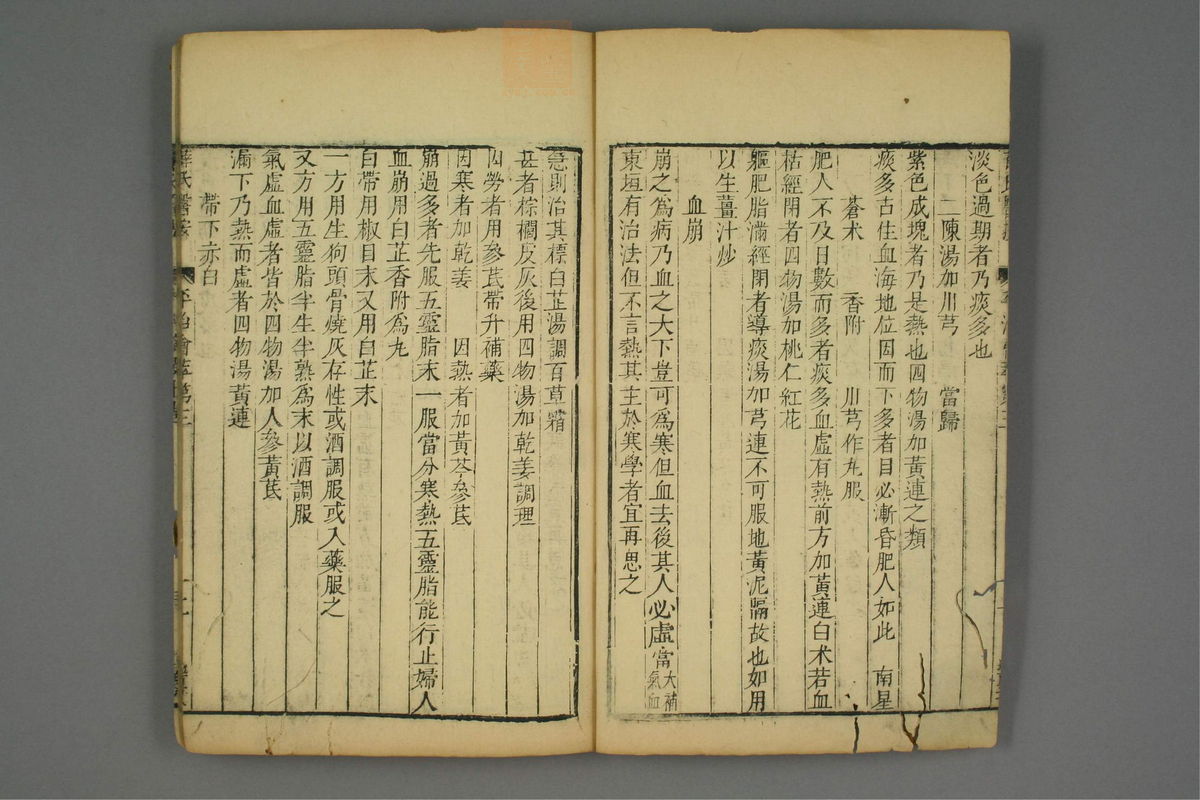 淡色過期者乃痰多也
二陳湯加川芎 當歸
紫色成塊者乃是熱也四物湯加黃連之類
痰多占住血海地位因而下多者目必漸昏肥人如此 南星
蒼术 香附 川芎作丸服
肥人不及日數而多者痰多血虛有熱前方加黃連白术若血
枯經閉者四物湯加桃仁紅花
軀肥脂滿經閉者導痰湯加芎連不可服地黃泥膈故也如用
以生薑汁炒
血崩
崩之為病乃血之大下豈可為寒但血去後其人必虛當大補氣血
東垣有治法但不言熱其主於寒學者宜再思之
急則治其標白芷湯調百草霜
甚者棕櫚皮灰後用四物湯加乾姜調理
因勞者用參芪帶升補藥
因寒者加乾姜 因熱者加黃芩參芪
崩過多者先服五靈脂末一服當分寒熱五靈脂能行止婦人
血崩用白芷香附為丸
白帶用椒目末又用白芷末
一方用生狗頭骨燒灰存性或酒調服或入藥服之
又方用五靈脂半生半熟為末以酒調服
氣虛血虛者皆於四物湯加人參黃芪
漏下乃熱而虛者四物湯黃連
帶下赤白
薛氏醫案
平治會萃卷三